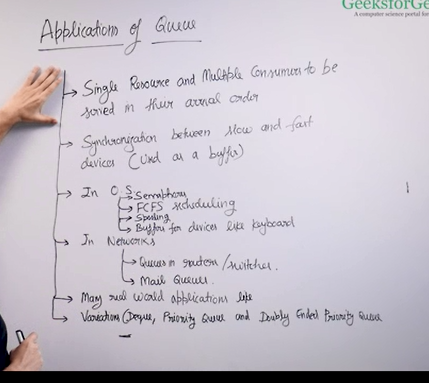 GeeksforGe
A computer science portal for
Applications of Queue
Single Resource and Multiple Consumers to be
served in their arrival order
Synchronization between slow and fast
devices (Used as a buffer)
In O.S.
Semaphores
FCFS scheduling
Spooling
Buffers for devices like keyboard
In Networks
Queues in routers/switches.
Mail Queues.
Many real world applications like
Variations (Deque, Priority Queue and Doubly Ended Priority Queue